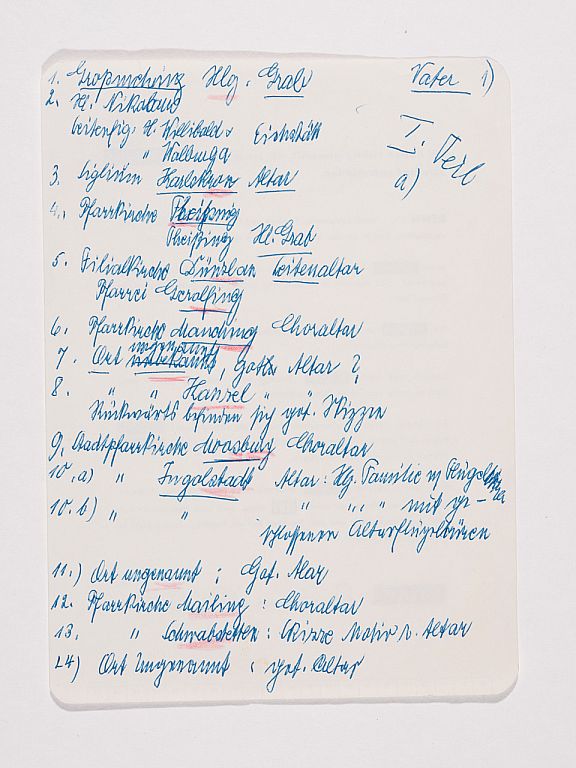 1. Großmehring Hlg. Grab Vater 1)
2. Hl. Nikolaus I. Teil
Seitenfig: H. Willibald & Eichstätt a)
" Walburga
3. Karlskron Altar
4. Pfarrkirche Theißing
Theißing Hl. Grab
5. Filialkirche Dünzlau Seitenaltar
Pfarrei Gerolfing
6. Pfarrkirche Manching Choraltar
ungenannt
7. Ort unbekannt, Goth Altar ?
8. " "
Rückwärts befinden sich got. Skizzen
9. Stadtpfarrkirche Moosburg Choraltar
10. a) " Ingolstadt Altar: Hlg. Familie
10. b) " " " " " mit ge-
schlossenen Altarflügeltüren
11.) Ort ungenannt : Got. Altar
12. Pfarrkirche Mailing : Choraltar
13. " : Skizze Motiv Altar
14) Ort Ungenannt : got. Altar